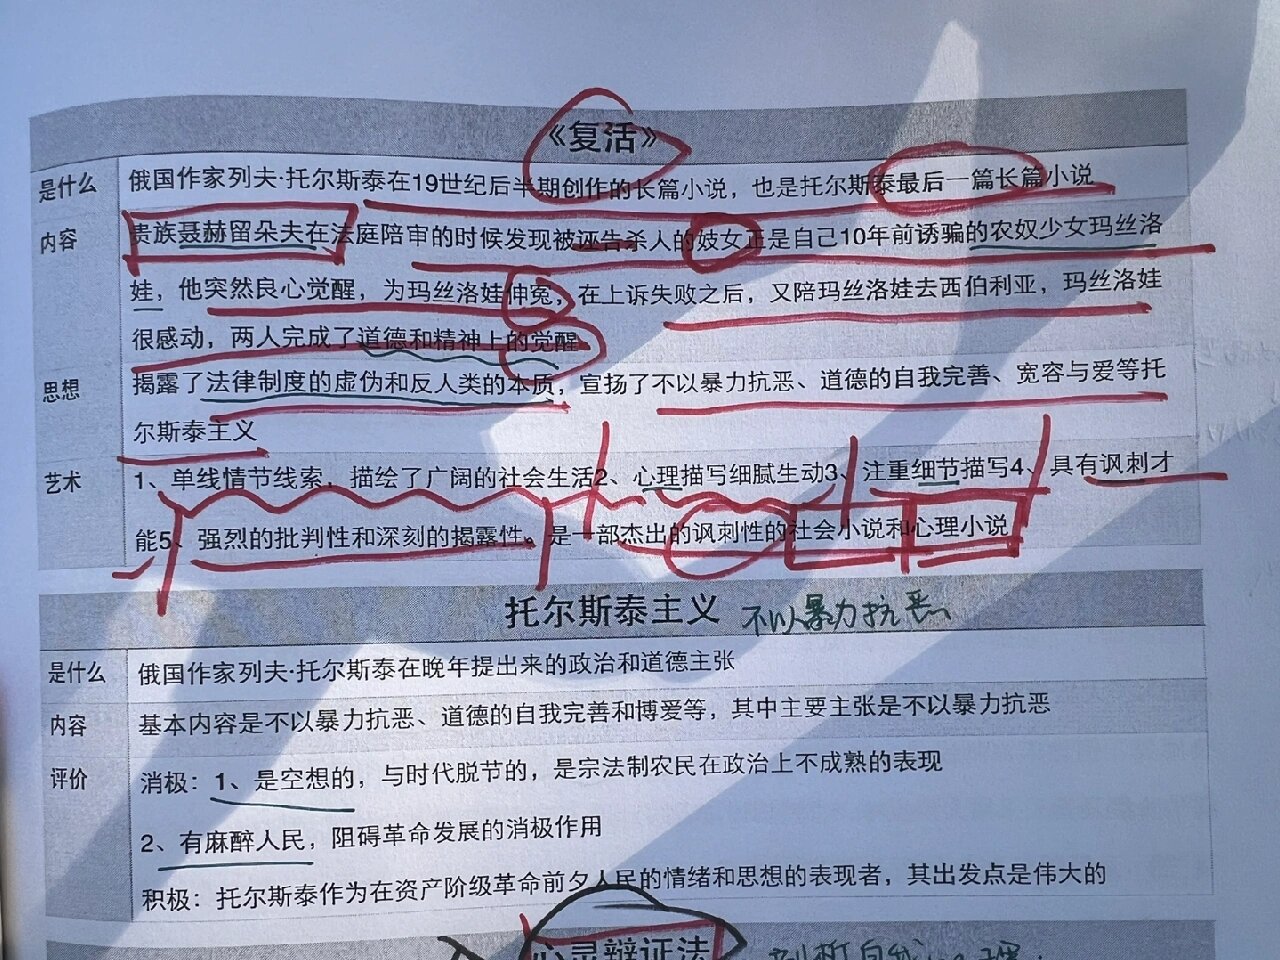 《复活》
是什么 俄国作家列夫·托尔斯泰在19世纪后半期创作的长篇小说，也是托尔斯泰最后一篇长篇小说
内容 贵族聂赫留朵夫在法庭陪审的时候发现被诬告杀人的妓女正是自己10年前诱骗的农奴少女玛丝洛
娃，他突然良心觉醒，为玛丝洛娃伸冤，在上诉失败之后，又陪玛丝洛娃去西伯利亚，玛丝洛娃
很感动，两人完成了道德和精神上的觉醒
思想 揭露了法律制度的虚伪和反人类的本质，宣扬了不以暴力抗恶、道德的自我完善、宽容与爱等托
尔斯泰主义
艺术 1、单线情节线索，描绘了广阔的社会生活2、心理描写细腻生动3、注重细节描写4、具有讽刺才
能5、强烈的批判性和深刻的揭露性。是一部杰出的讽刺性的社会小说和心理小说
托尔斯泰主义 不以暴力抗恶
是什么 俄国作家列夫·托尔斯泰在晚年提出来的政治和道德主张
内容 基本内容是不以暴力抗恶、道德的自我完善和博爱等，其中主要主张是不以暴力抗恶
评价 消极：1、是空想的，与时代脱节的，是宗法制农民在政治上不成熟的表现
2、有麻醉人民，阻碍革命发展的消极作用
积极：托尔斯泰作为在资产阶级革命前夕人民的情绪和思想的表现者，其出发点是伟大的
心灵辩证法